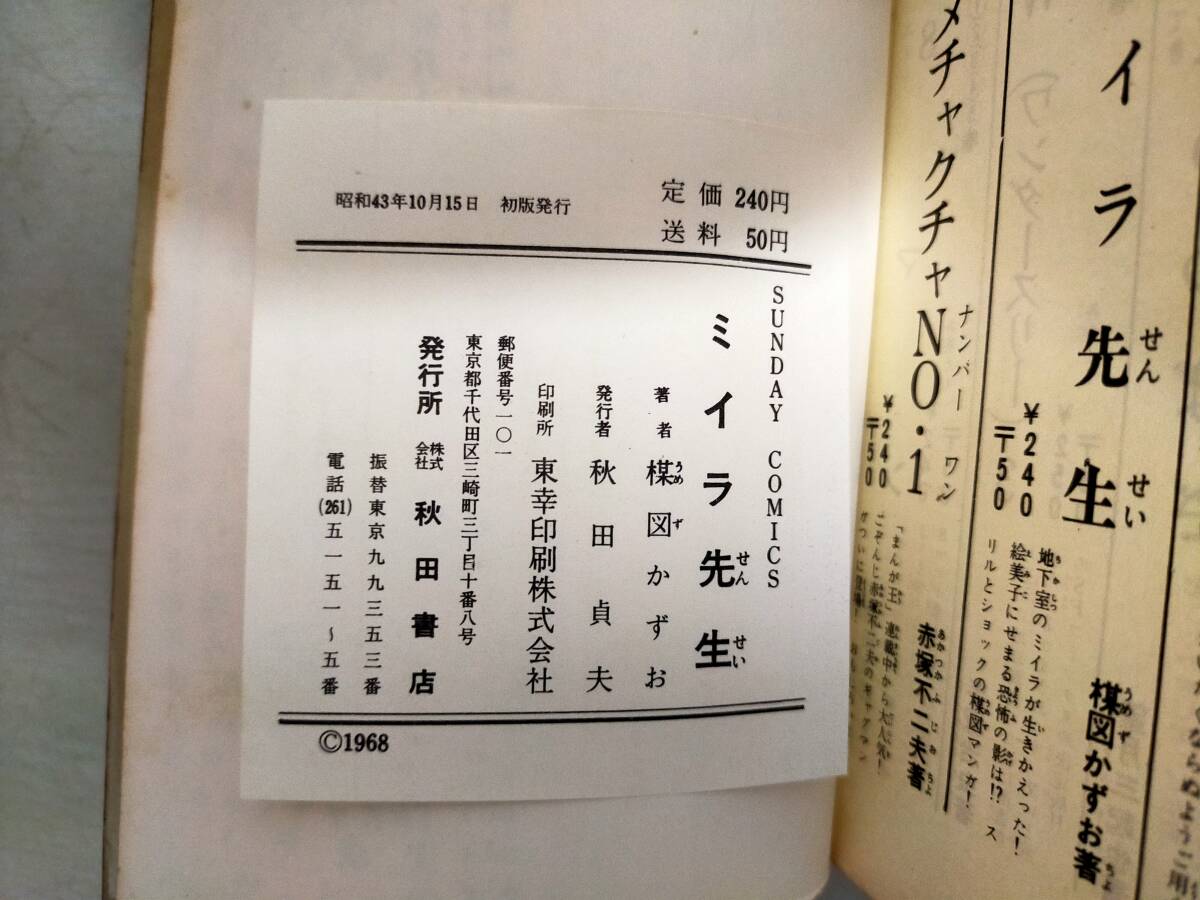 昭和43年10月15日　初版発行
定価 240円
送料 50円
SUNDAY COMICS
ミイラ先生
せんせい
著者 楳図かずお
うめず
発行者 秋田貞夫
印刷所 東幸印刷株式会社
郵便番号一〇一
東京都千代田区三崎町三丁目十番八号
発行所 株式会社 秋田書店
振替東京九九三五三番
電話(261)五一五一〜五番
©1968
イラ先生
せんせい
¥240
〒50
地下室のミイラが生きかえった!
絵美子にせまる恐怖の影は!? ス
リルとショックの楳図マンガ!
楳図かずお著
うめず ちよ
メチャクチャNO・1
ナンバー ワン
¥240
〒50
「まんが王」連載中から大人気!
ごぞんじ赤塚不二夫のギャグマン
赤塚不二夫著
あかつかふじおちよ